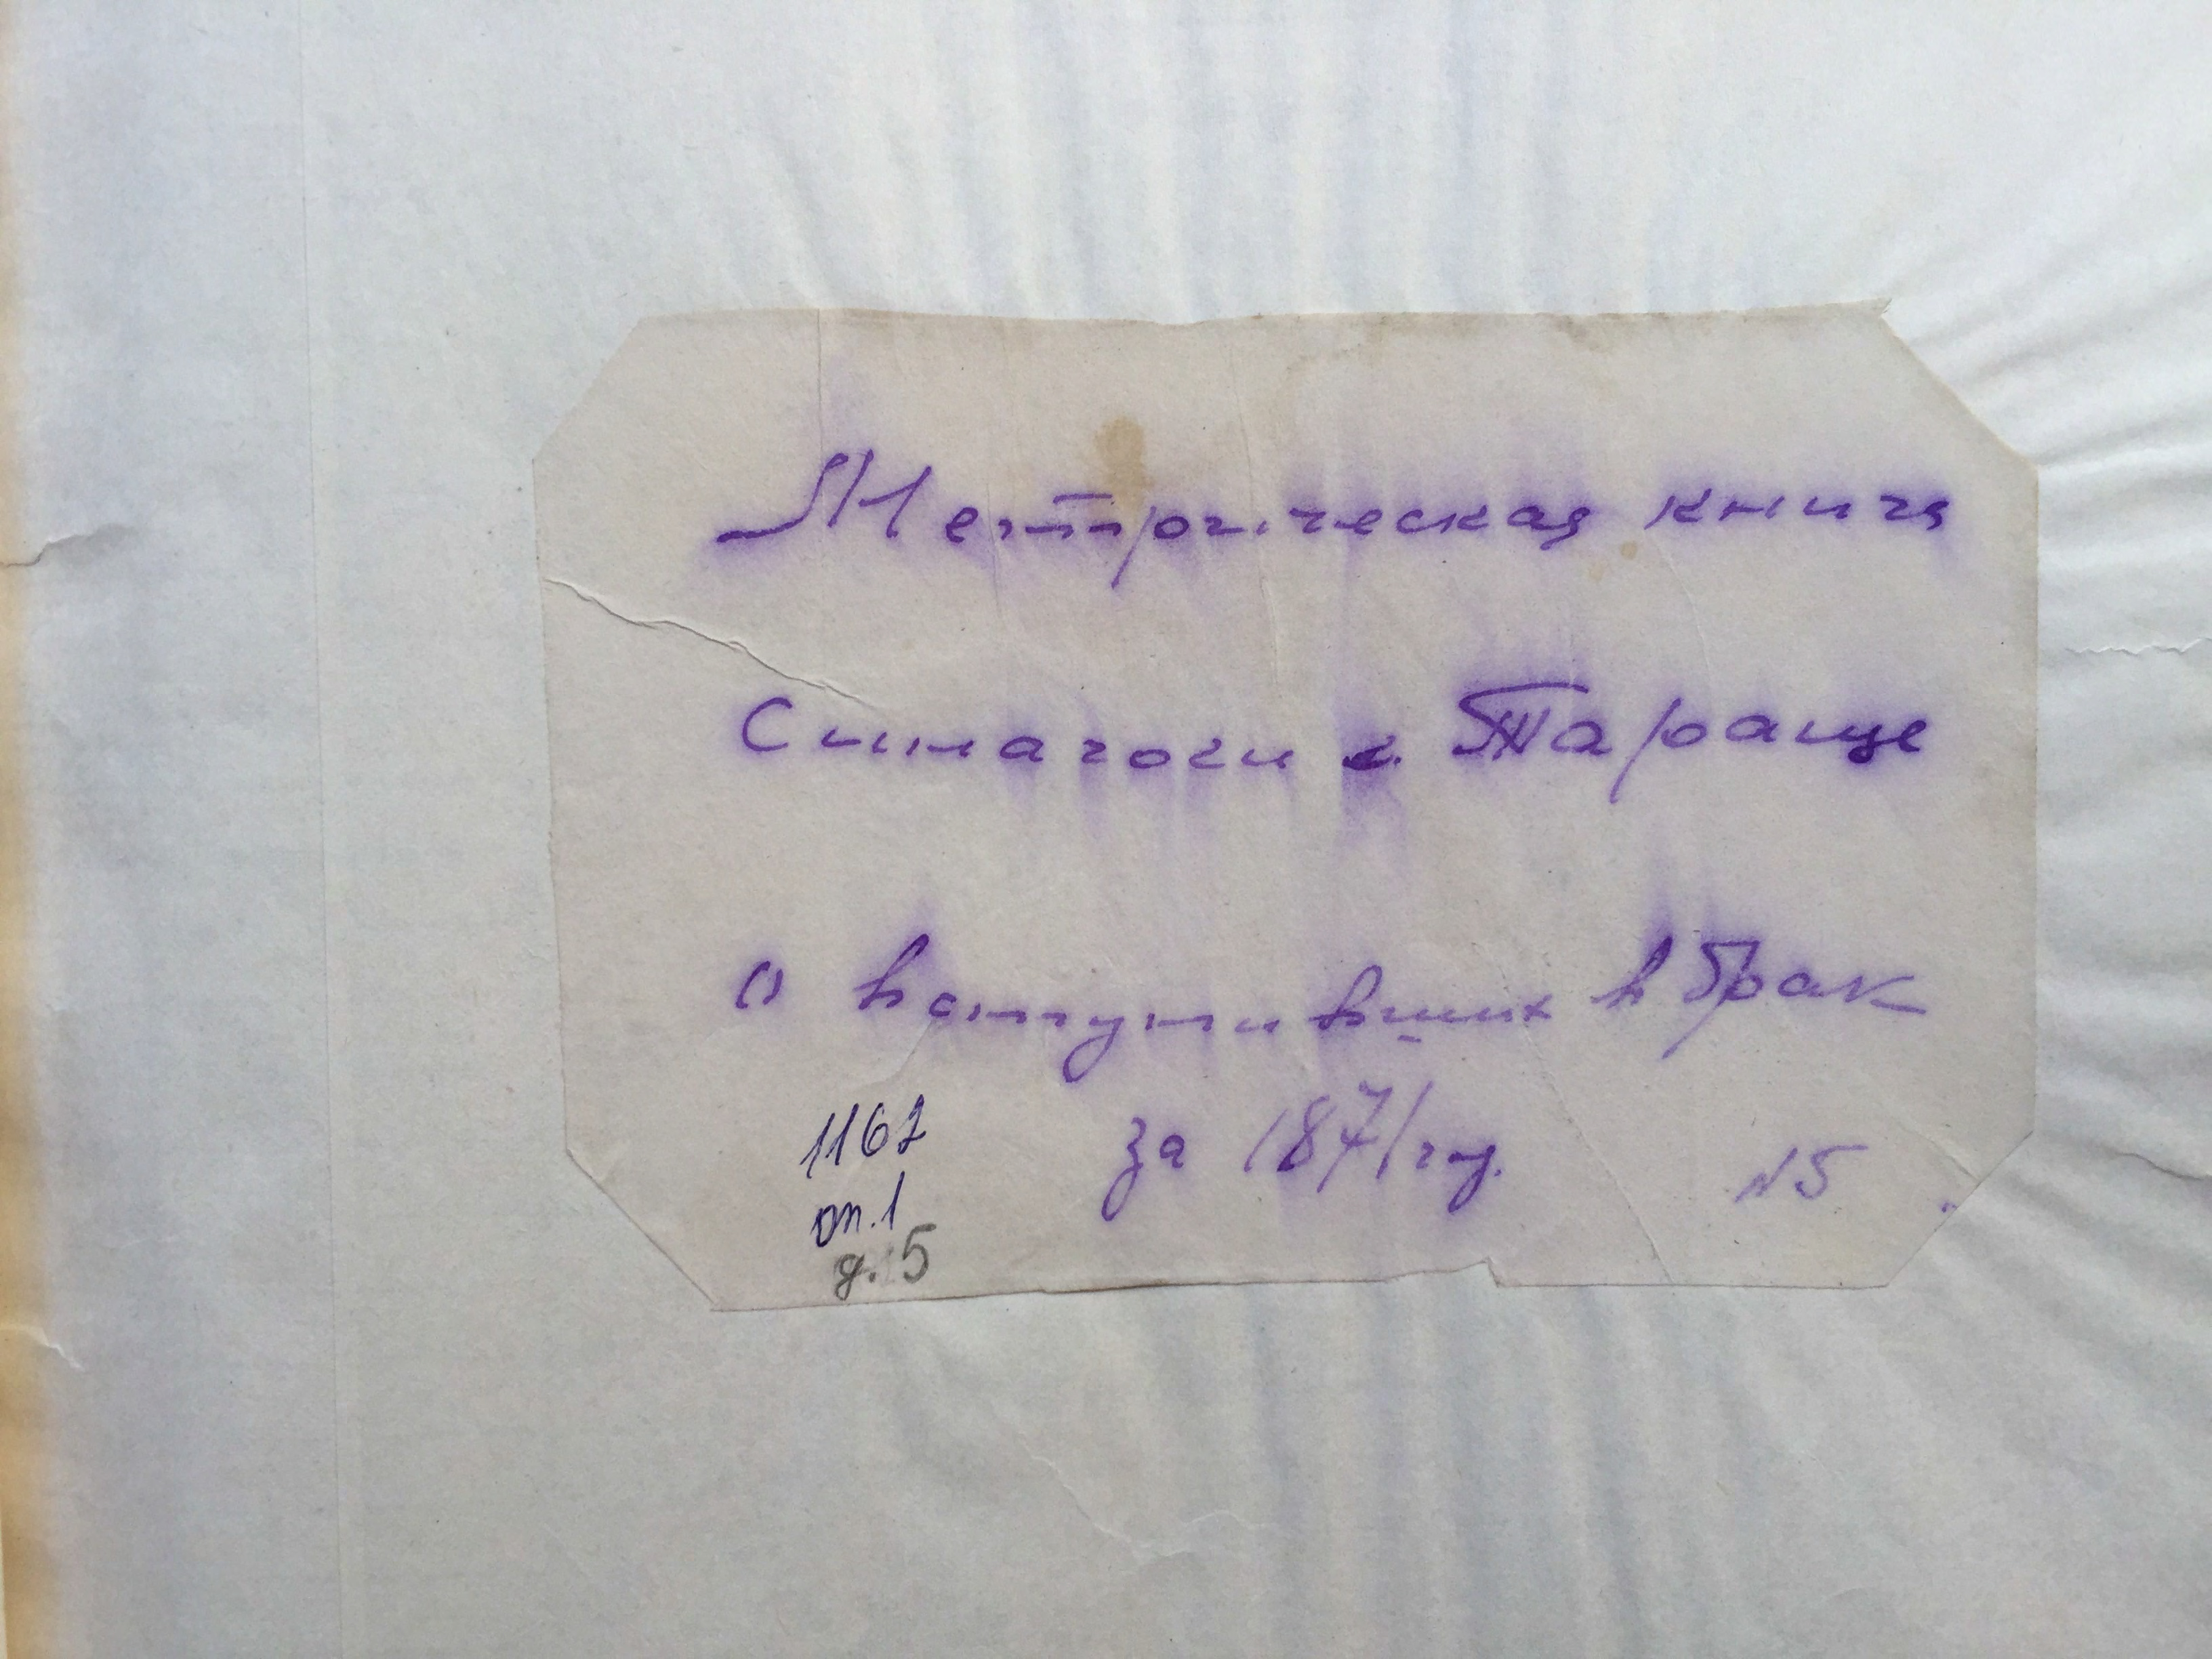 Метрическая книга
Синагоги г. Тараще
о вступивших в брак
за 1871 год.
N5
1162
оп. 1
д. 5